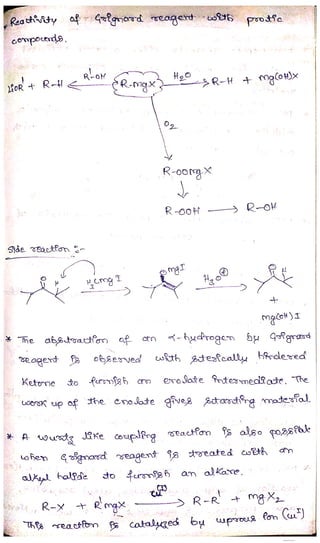 Reactivity of Grignard reagent with protic
compounds.
R-H R'-OH R-mgX H2O R-H + mg(OH)X
O2
R-OOmg.X
R-OOH → R-OH
Side reaction :-
O H H3CmgI OmgI H3O⊕ O H
+
mg(OH)I
* The abstraction of an α-hydrogen by Grignard
reagent is observed with sterically hindered
Ketone to furnish an enolate intermediate. The
work up of the enolate gives starting material.
* A wurtz like coupling reaction is also possible
when Grignard reagent is treated with an
alkyl halide to furnish an alkane.
R-X + R'mgX → R-R' + mgX2
This reaction is catalyzed by cuprous ion (CuI)